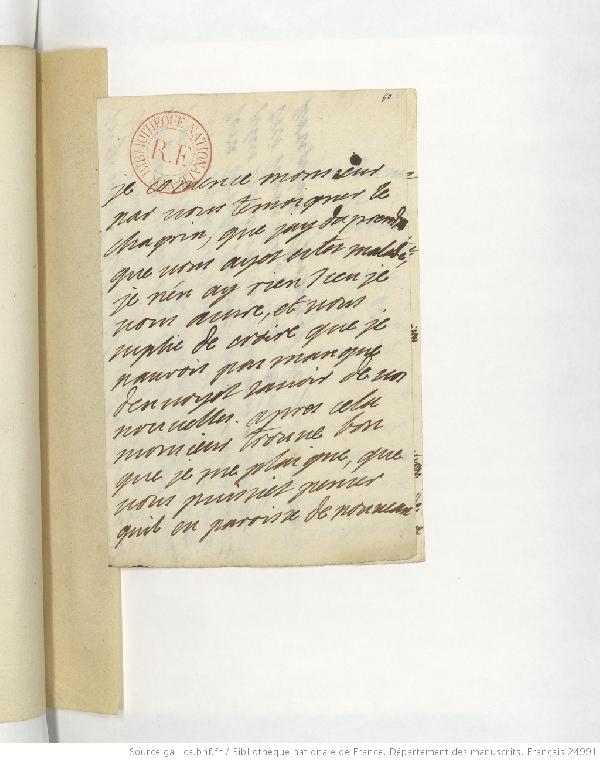 60
BIBLIOTHEQUE NATIONALE
R.F.
je comence monsieur
par vous temoigner le
chagrin, que jay daprendre
que vous ayes estes malade,
je nen ay rien sceu je
vous assure, et vous
suplie de croire que je
naurois pas manque
denvoyer savoir de vos
nouvelles. apres cela
monsieur trouve bon
que je me plaigne, que
vous puissiez penser
quil en paroisse de nouveau
Source gallica.bnf.fr / Bibliothèque nationale de France. Département des manuscrits. Français 24991